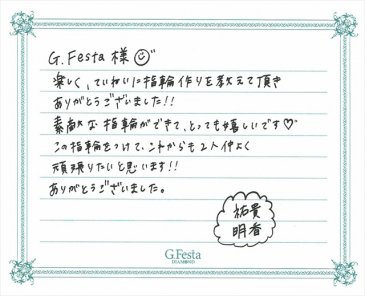 G.Festa 様
楽しく、ていねいに指輪作りを教えて頂き
ありがとうございました!!
素敵な指輪ができて、とっても嬉しいです♡
この指輪をつけて、これからも2人仲よく
頑張りたいと思います!!
ありがとうございました。
祐貴
明香
G.Festa
DIAMOND